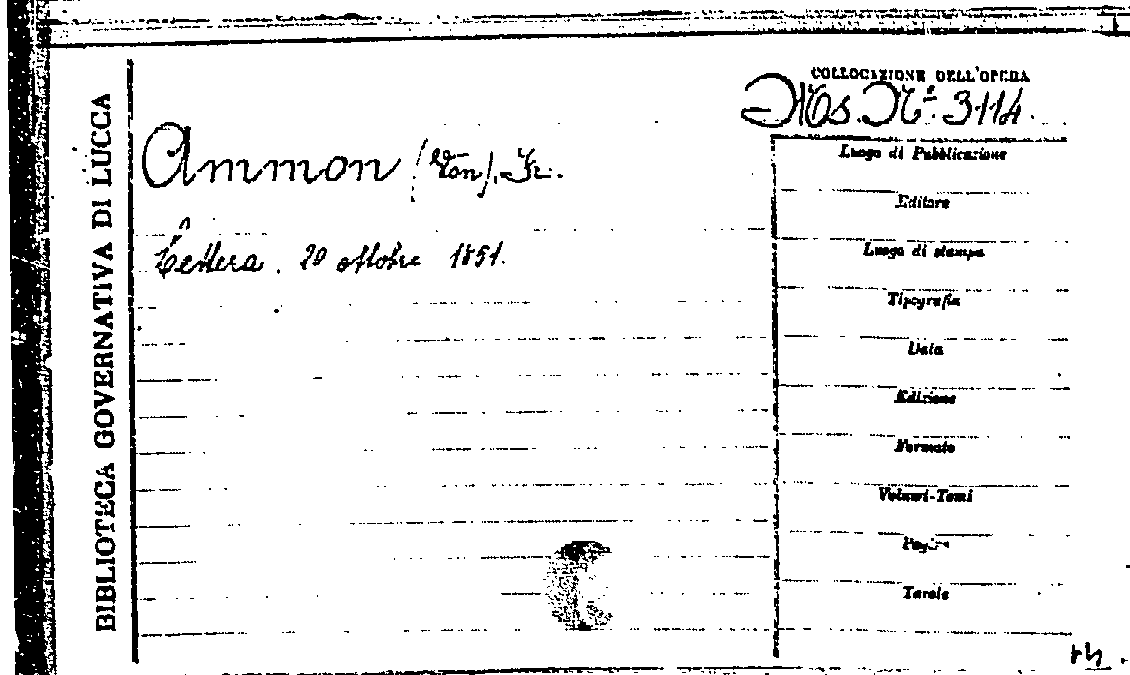 BIBLIOTECA GOVERNATIVA DI LUCCA
COLLOCAZIONE DELL'OPERA
Ms. N.° 3114.
Ammon (Von), Fr.
Lettera. 20 ottobre 1851.
Luogo di Pubblicazione
Editore
Luogo di stampa
Tipografia
Data
Edizione
Formato
Volumi-Tomi
Pagine
Tavole